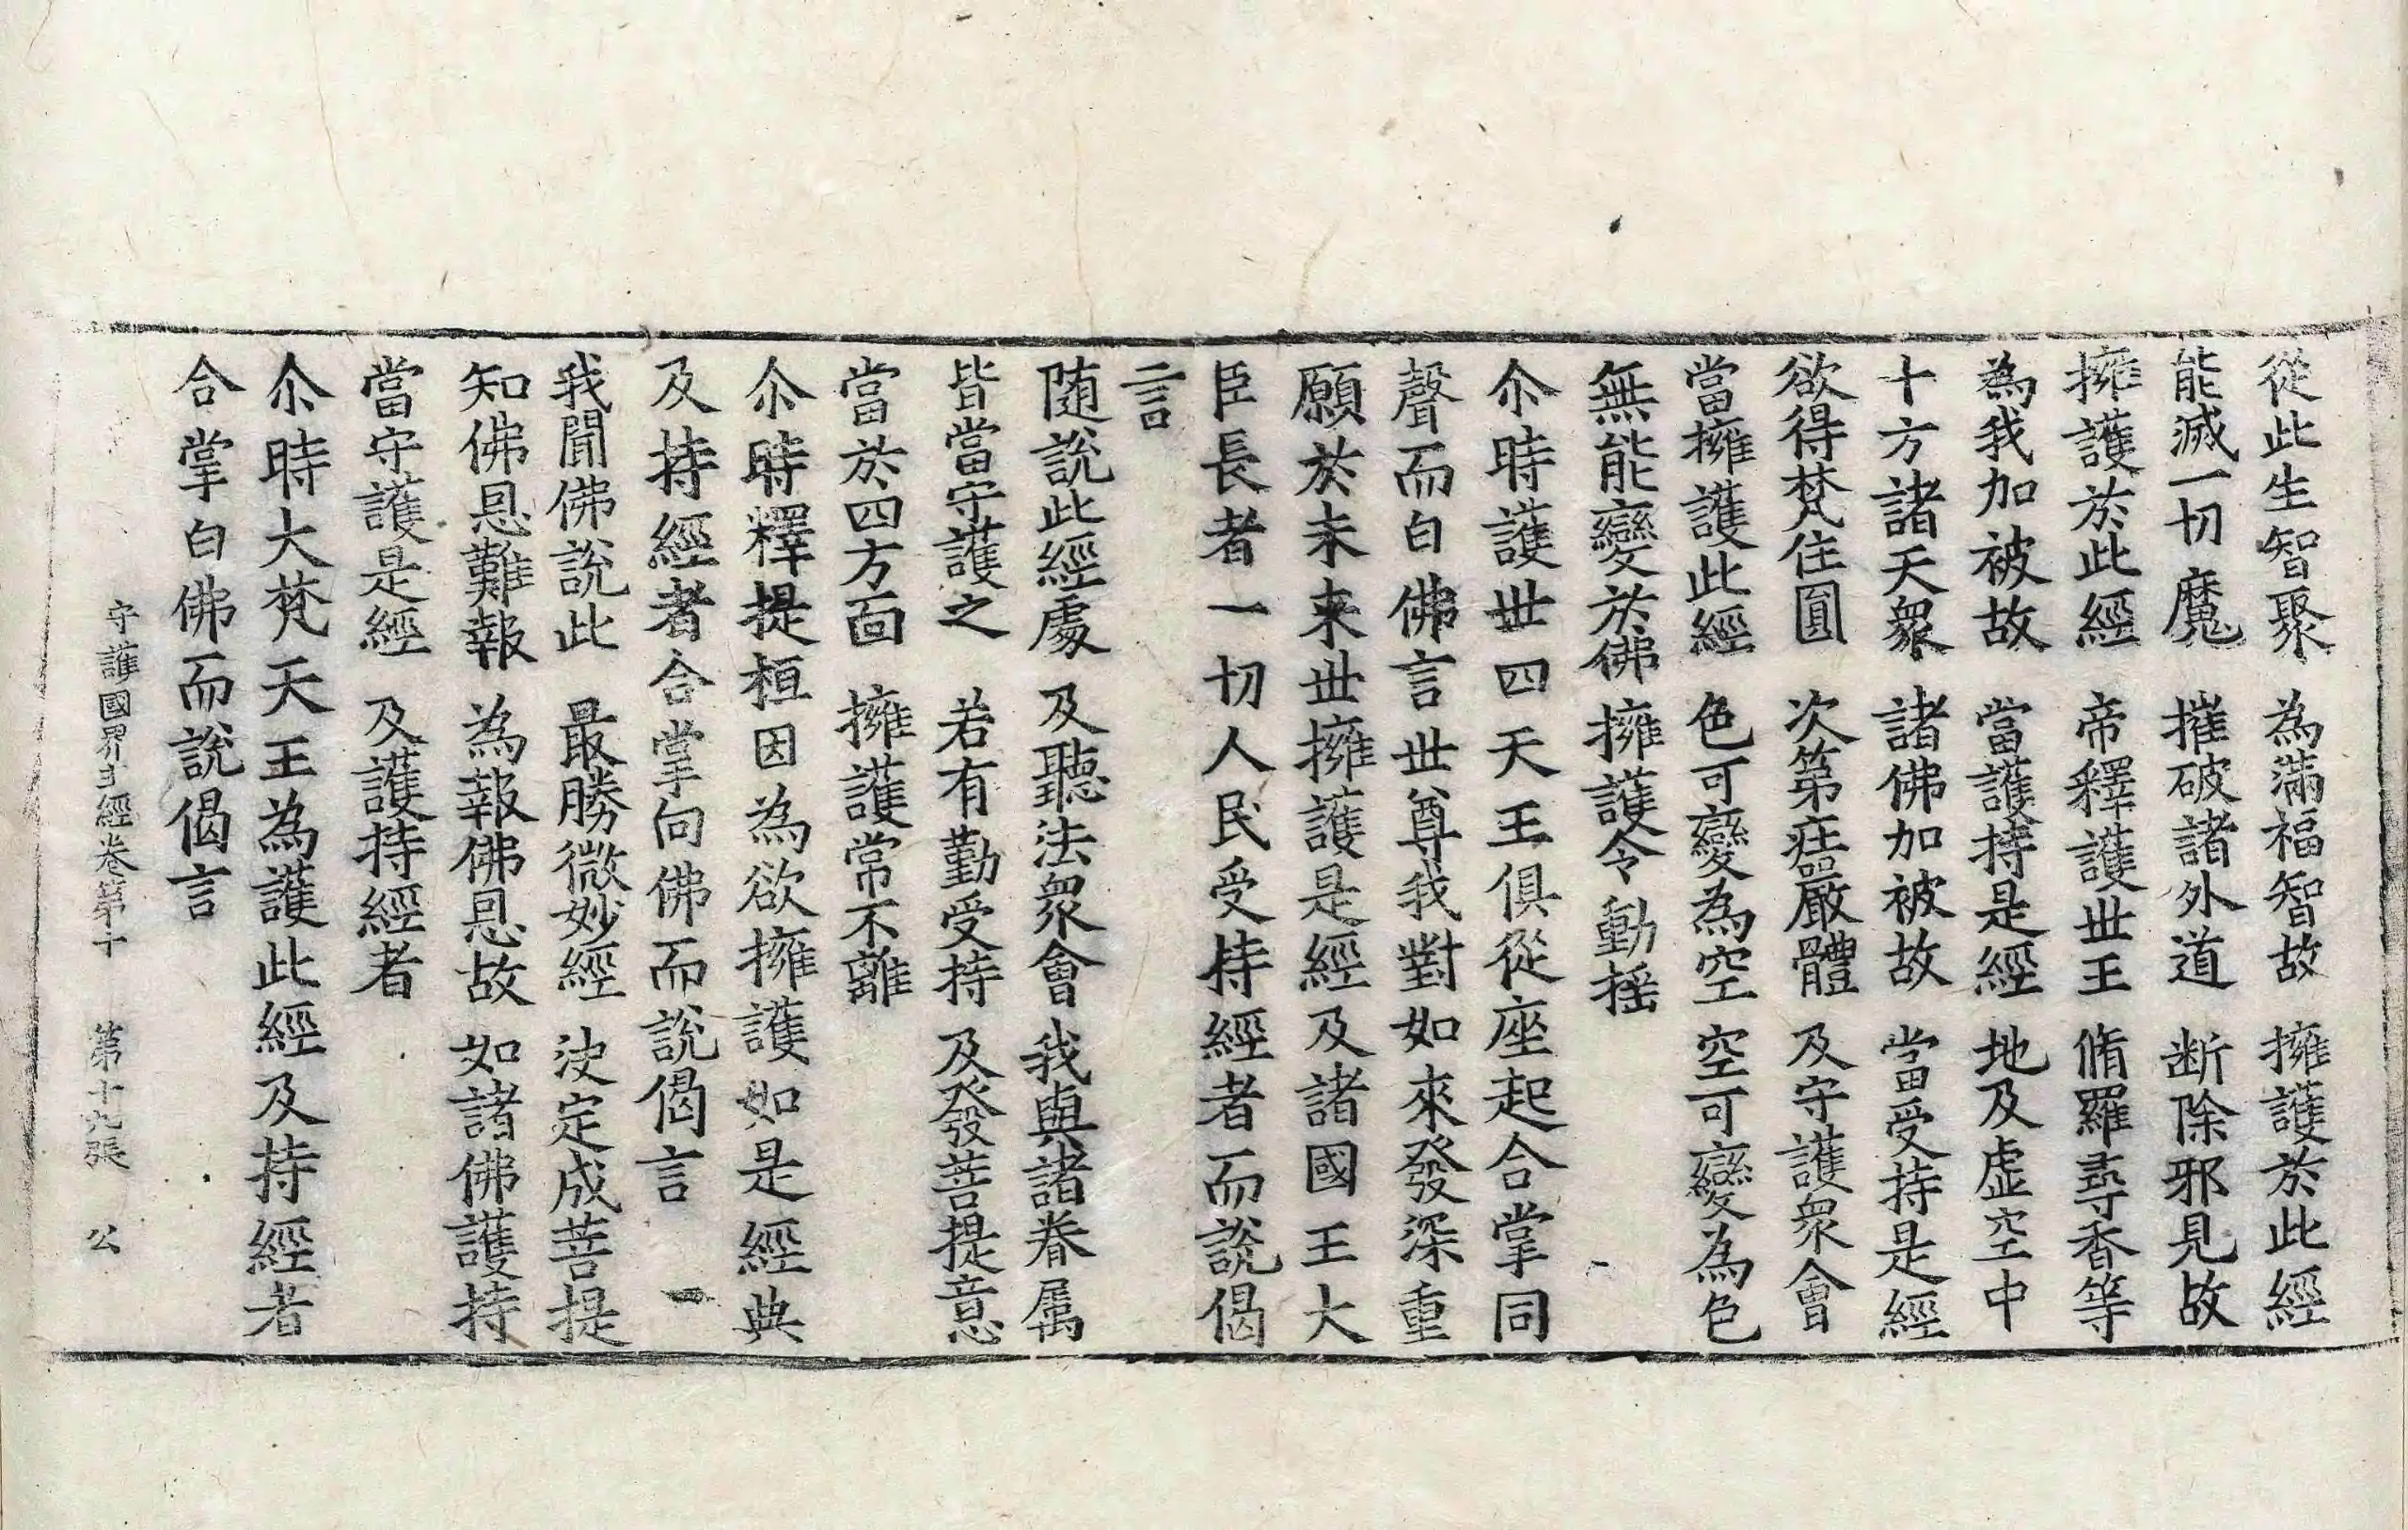 從此生智聚 為滿福智故 擁護於此經
能滅一切魔 摧破諸外道 断除邪見故
擁護於此經 帝釋護世王 脩羅尋香等
為我加被故 當護持是經 地及虛空中
十方諸天衆 諸佛加被故 當受持是經
欲得梵住圓 次第莊嚴體 及守護衆會
當擁護此經 色可變為空 空可變為色
無能變於佛 擁護令動揺
尒時護世四天王俱從座起合掌同
聲而白佛言世尊我對如來發深重
願於未来世擁護是經及諸國王大
臣長者一切人民受持經者而說偈
言
随說此經處 及聽法衆會 我與諸眷属
皆當守護之 若有勤受持 及發菩提意
當於四方面 擁護常不離
尒時釋提桓因為欲擁護如是經典
及持經者合掌向佛而說偈言
我聞佛說此 最勝微妙經 決定成菩提
知佛恩難報 為報佛恩故 如諸佛護持
當守護是經 及護持經者
尒時大梵天王為護此經及持經者
合掌白佛而說偈言
守護國界主經卷第十 第十九張 公